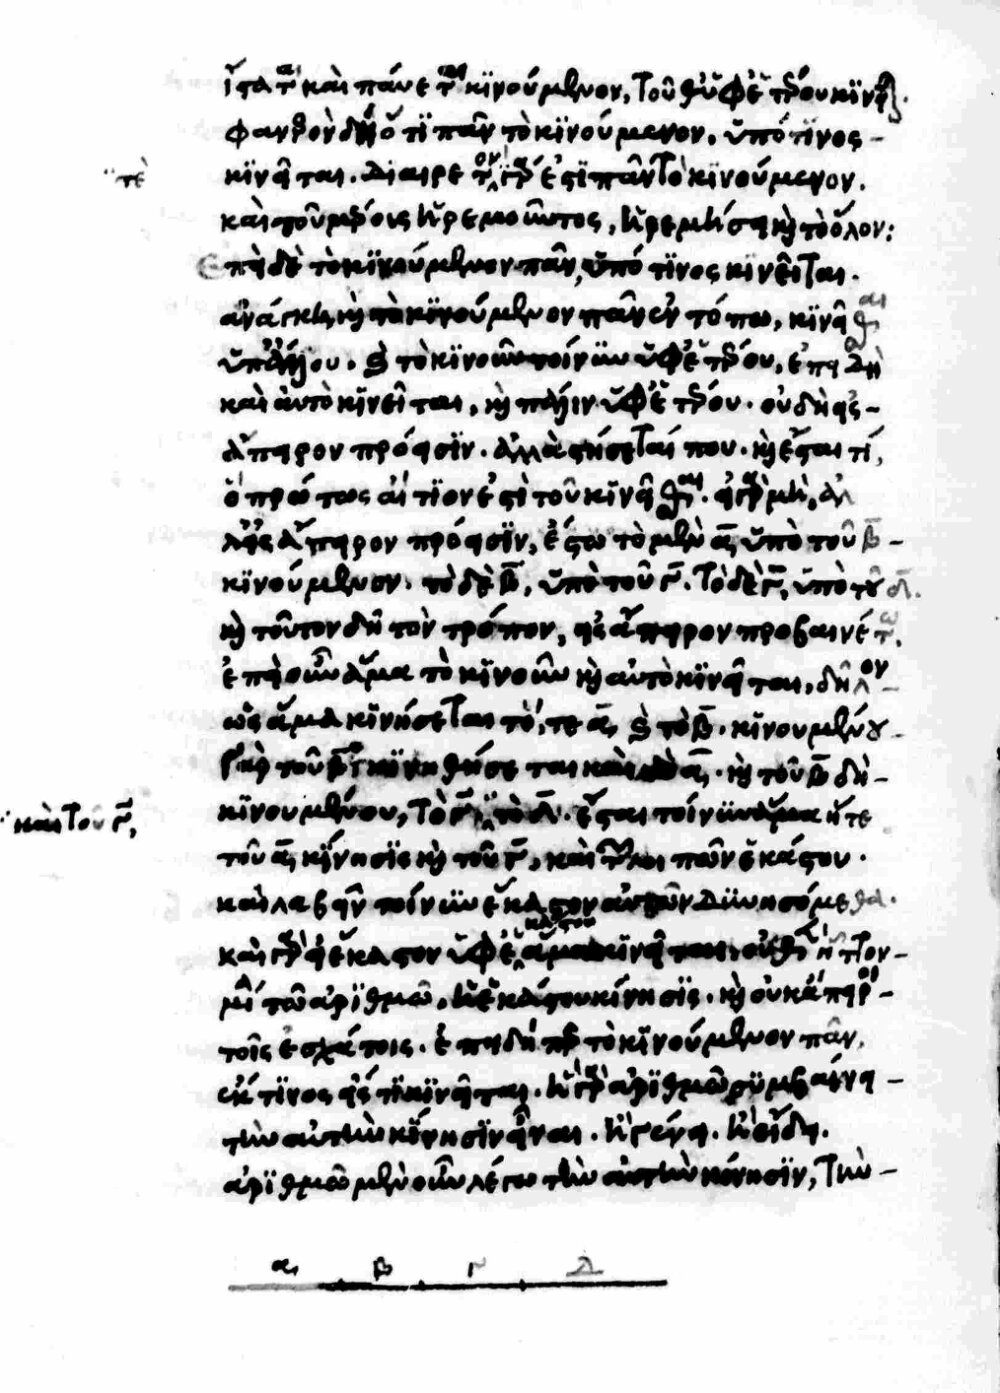 ἵσταται καὶ παύεται κινούμενον, τοῦθ' ὑφ' ἑτέρου κινεῖται.
φανερὸν δὴ ὅτι πᾶν τὸ κινούμενον, ὑπό τινος
τὲ
κινεῖται. διαιρετὸν γάρ ἐστι πᾶν τὸ κινούμενον.
καὶ τοῦ μέρους ἠρεμοῦντος, ἠρεμήσει καὶ τὸ ὅλον:
Ἐπεὶ δὲ τὸ κινούμενον πᾶν, ὑπό τινος κινεῖται.
ἀνάγκη καὶ τὸ κινούμενον πᾶν ἐν τόπω, κινεῖσθαι
ὑπ' ἄλλου. καὶ τὸ κινοῦν τοίνυν ὑφ' ἑτέρου, ἐπειδὴ
καὶ αὐτὸ κινεῖται, καὶ πάλιν ὑφ' ἑτέρου. οὐ δὴ εἰς
ἄπειρον πρόεισιν. ἀλλὰ στήσεταί που. καὶ ἔσται τί,
ὃ πρώτως αἴτιον ἐστὶ τοῦ κινεῖσθαι. εἰ γὰρ μὴ, ἀλ
λ' εἰς ἄπειρον πρόεισιν, ἔστω τὸ μὲν α, ὑπὸ τοῦ β
κινούμενον. τὸ δὲ β, ὑπὸ τοῦ γ. τὸ δὲ γ, ὑπὸ τοῦ δ.
καὶ τοῦτον δὴ τὸν τρόπον, εἰς ἄπειρον προβαινέτω.
ἐπεὶ οὖν ἅμα τὸ κινοῦν καὶ αὐτὸ κινεῖται, δῆλον
ὡς ἅμα κινήσεται τό, τε α, καὶ τὸ β. κινουμένου
γὰρ τοῦ β κινηθήσεται καὶ τὸ α. καὶ τοῦ β δὴ
κινουμένου, τὸ γ, τὸ δ. ἔσται τοίνυν ἅμα ἥτε
καὶ τοῦ γ,
τοῦ α, κίνησις καὶ τοῦ γ, καὶ τῶν λοιπῶν ἑκάστου.
καὶ λαβεῖν τοίνυν ἕκαστον αὐτῶν δυνησόμεθα.
καὶ γὰρ εἰ ἕκαστον ὑφ' ἑκάστου ἅμα κινεῖται, οὐθὲν ἧττον
μία τῶ ἀριθμῶ, ἡ ἑκάστου κίνησις. καὶ οὐκ ἄπειροι
τοῖς ἐσχάτοις. ἐπειδήπερ τὸ κινούμενον πᾶν,
ἔκ τινος εἴς τι κινεῖται. ἢ γὰρ ἀριθμῶ συμβαίνει
τὴν αὐτὴν κίνησιν εἶναι. ἢ γένει. ἢ εἴδει.
ἀριθμῶ μὲν οὖν λέγω τὴν αὐτὴν κίνησιν, τὴν
α β γ δ